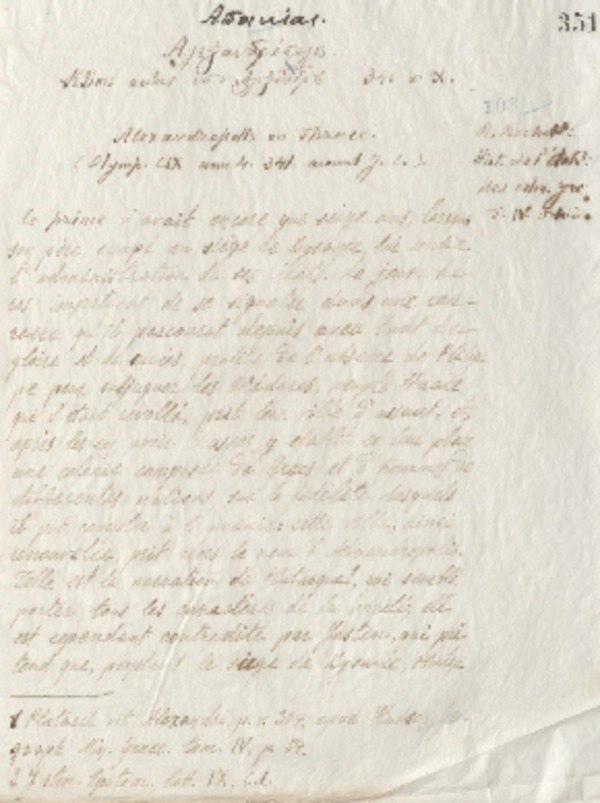 Ατταλίας.
351
Αλεξανδρόπολις
341 π. Χ.
108
Alexandropolis en Thrace.
(Olymp. CIX ann. 4. 341. avant J. C.).
R. Rochette:
Hist. de l'établ:
des colon. gre.
T. IV.
Ce prince n'avait encore que seize ans, lorsque
son père, occupé au siège de Byzance, lui confia
l'administration de ses états. Le jeune
impatient de se signaler dans une car-
rière qu'il parcourut depuis avec tant de
gloire et de succès, profita de l'absence de Philip-
pe pour subjuguer les Médares, peuple thrace
qui s'était révolté, prit leur ville d'assaut, et
après les en avoir y établit en leur place
une colonie composée de Grecs et d'hommes de
différentes nations sur la fidélité desquels
il put compter à l'avenir: cette ville, ainsi
renouvelée prit alors le nom d'Alexandropolis.
Telle est la narration de Plutarque¹, qui semble
porter tous les caractères de la vérité; elle
est cependant contredite par Justin, qui pré-
tend que, pendant le siège de Byzance,
1 Plutarch. vit. Alexandri, p. apud Hudson,
graph. Min. Graec. tom. IV, p.
2 Justin. lib. IX, C. I.